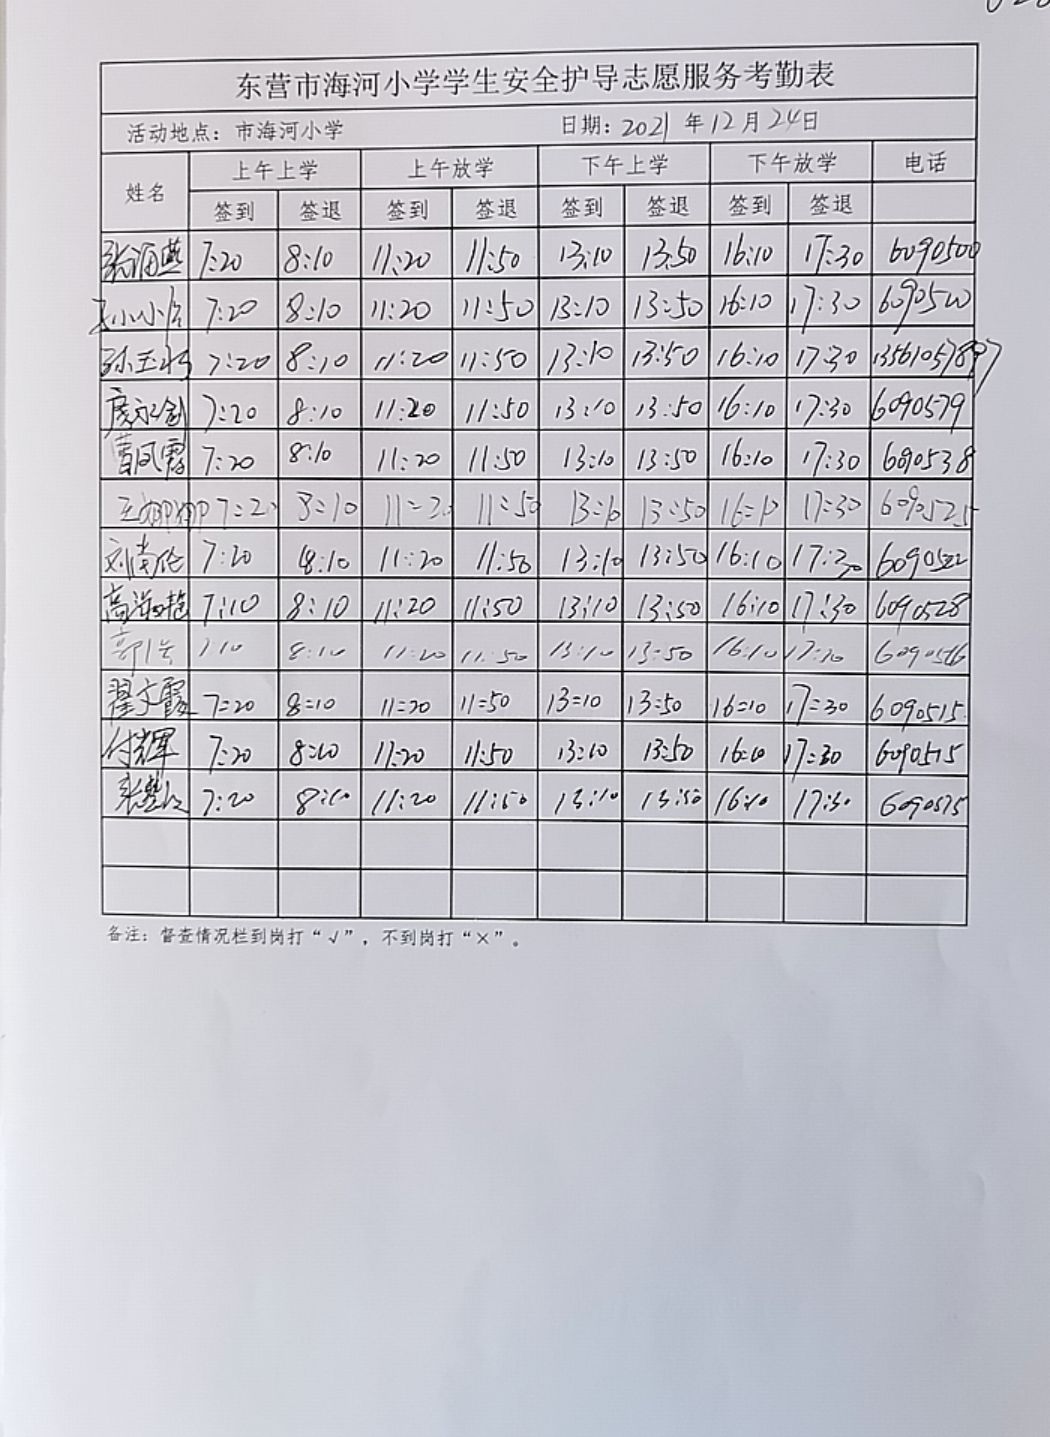 东营市海河小学学生安全护导志愿服务考勤表
活动地点：市海河小学 日期：2021年12月24日
姓名 上午上学 上午放学 下午上学 下午放学 电话
签到 签退 签到 签退 签到 签退 签到 签退
7:20 8:10 11:20 11:50 13:10 13:50 16:10 17:30 6090500
7:20 8:10 11:20 11:50 13:10 13:50 16:10 17:30
7:20 8:10 11:20 11:50 13:10 13:50 16:10 17:30
7:20 8:10 11:20 11:50 13:10 13:50 16:10 17:30 6090579
曹凤霞 7:20 8:10 11:20 11:50 13:10 13:50 16:10 17:30 6090538
王娜娜 7:20 8:10 11:20 11:50 13:10 13:50 16:10 17:30 6090525
7:20 8:10 11:20 11:50 13:10 13:50 16:10 17:30 6090522
高海艳 7:10 8:10 11:20 11:50 13:10 13:50 16:10 17:30 6090528
7:10 8:10 11:20 11:50 13:10 13:50 16:10 17:30
翟文霞 7:20 8:10 11:20 11:50 13:10 13:50 16:10 17:30 6090515
付辉 7:20 8:10 11:20 11:50 13:10 13:50 16:10 17:30 6090515
7:20 8:10 11:20 11:50 13:10 13:50 16:10 17:30 6090575
备注：督查情况栏到岗打“√”，不到岗打“×”。